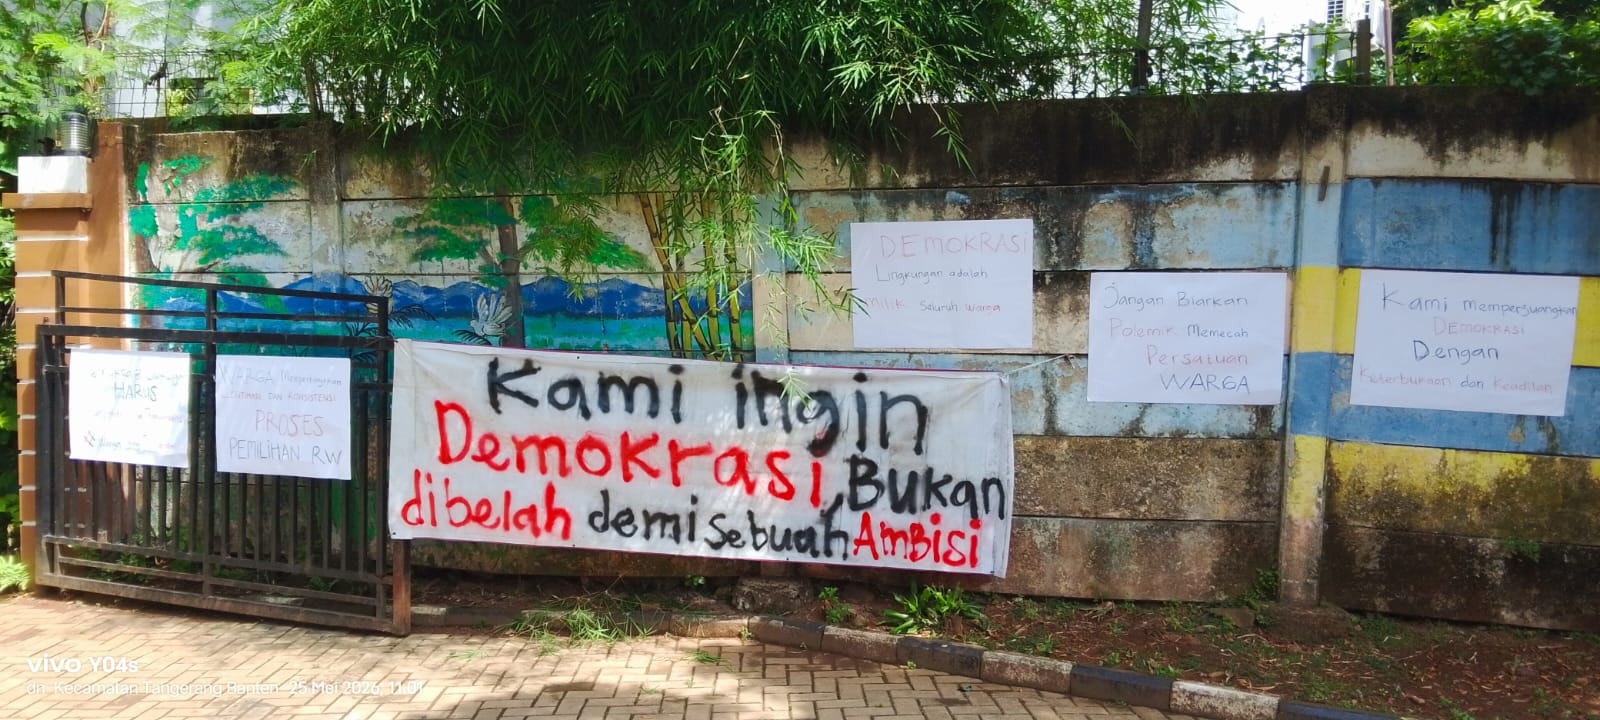 HARUS
WARGA Mempertanyakan
LEGITIMASI DAN KONSISTENSI
PROSES
PEMILIHAN RW
Kami ingin
Demokrasi, Bukan
dibelah demi sebuah AMBISI
DEMOKRASI
Lingkungan adalah
milik seluruh warga
Jangan Biarkan
Polemik Memecah
Persatuan
WARGA
Kami memperjuangkan
DEMOKRASI
Dengan
Keterbukaan dan Keadilan
vivo Y04s
dn. Kecamatan Tangerang Banten 25 Mei 2026, 11:01